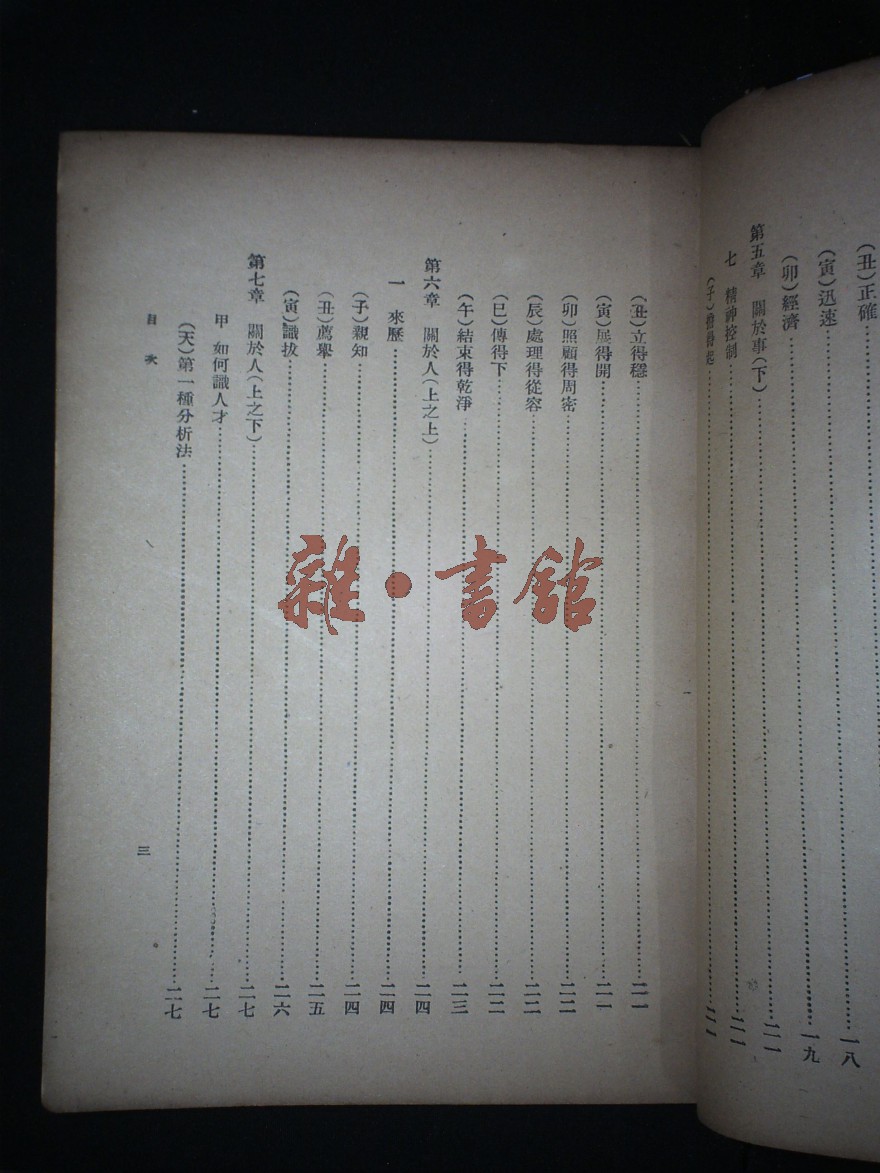 (丑)正確……一八
(寅)迅速……一九
(卯)經濟
第五章 關於事(下)……二一
七 精神控制……二一
(子)擔得起……二一
(丑)立得穩……二一
(寅)展得開……二一
(卯)照顧得周密……二二
(辰)處理得從容……二二
(巳)傳得下……二二
(午)結束得乾淨……二三
第六章 關於人(上之上)……二四
一 來歷……二四
(子)親知……二四
(丑)薦舉……二五
(寅)識拔……二六
第七章 關於人(上之下)……二七
甲 如何識人才……二七
(天)第一種分析法……二七
目次 三
雜·書館